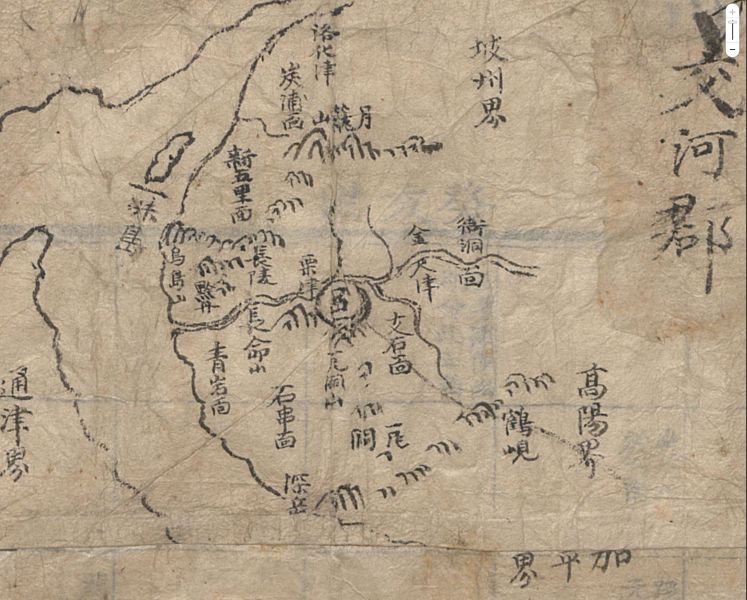 交河郡
坡州界
洛化津
炭浦面
月籠山
新五里面
烏島山
長陵
金天津
衙洞面
栗津
邑
長命山
瓦洞山
支石面
青岩面
石串面
瓦洞
鶴峴
高陽界
深岳
通津界
加平界